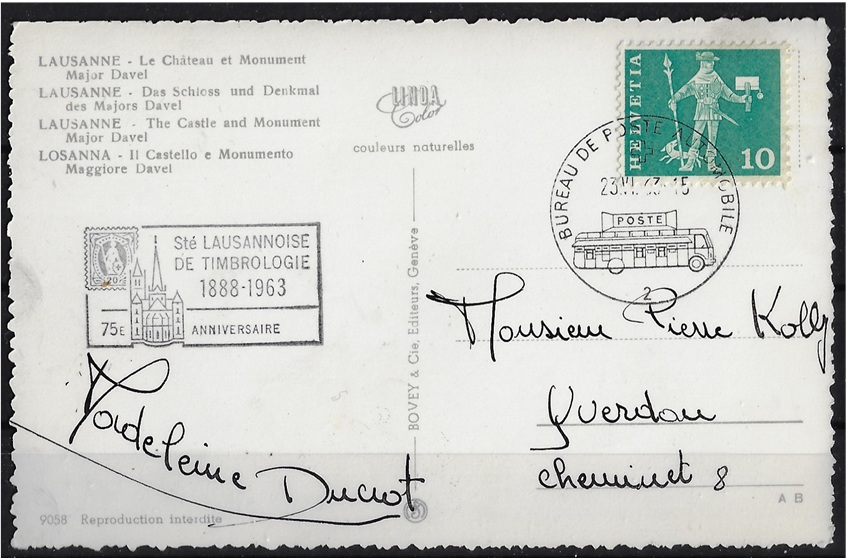 LAUSANNE - Le Château et Monument
Major Davel
LAUSANNE - Das Schloss und Denkmal
des Majors Davel
LAUSANNE - The Castle and Monument
Major Davel
LOSANNA - Il Castello e Monumento
Maggiore Davel
LINDA
Color
couleurs naturelles
HELVETIA
10
BUREAU DE POSTE AUTOMOBILE
23.VI.63-15
POSTE
2
20
Sté LAUSANNOISE
DE TIMBROLOGIE
1888-1963
75E ANNIVERSAIRE
BOVEY & Cie, Editeurs, Genève
Monsieur Pierre Kolly
Yverdon
cheminet 8
Madeleine Ducrot
9058 Reproduction interdite
A B